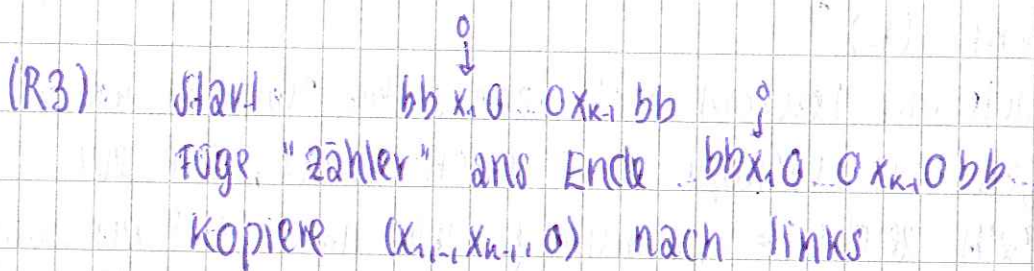 0
↓
(R3): Start: bb x₁ 0...0 xₖ₋₁ bb
0
↓
Füge "zähler" ans Ende ..bb x₁ 0...0 xₖ₋₁ 0 bb..
Kopiere (x₁,..,xₖ₋₁, 0) nach links